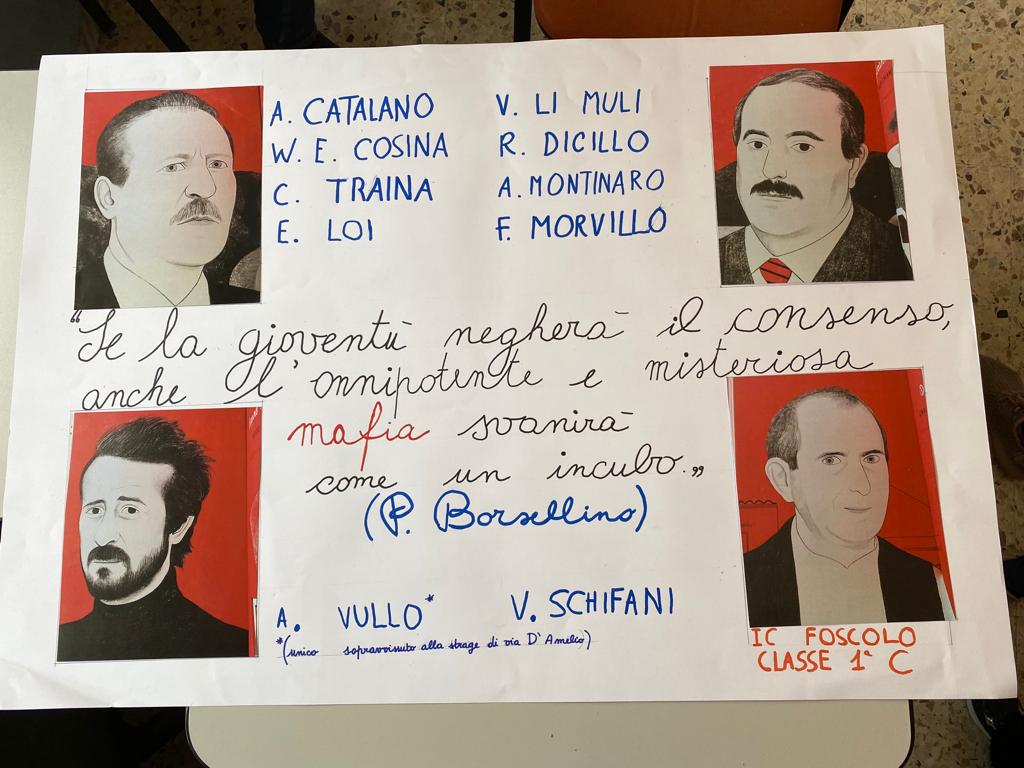 A. CATALANO
W. E. COSINA
C. TRAINA
E. LOI
V. LI MULI
R. DICILLO
A. MONTINARO
F. MORVILLO
“Se la gioventù negherà il consenso,
anche l'onnipotente e misteriosa
mafia svanirà
come un incubo.”
(P. Borsellino)
A. VULLO*
V. SCHIFANI
*(unico sopravvissuto alla strage di via D'Amelio)
IC FOSCOLO
CLASSE 1ª C